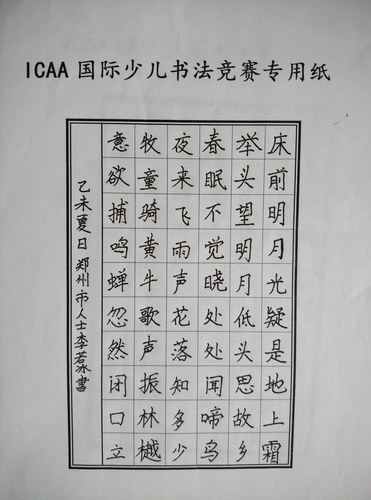 ICAA国际少儿书法竞赛专用纸
床前明月光疑是地上霜
举头望明月低头思故乡
春眠不觉晓处处闻啼鸟
夜来飞雨声花落知多少
牧童骑黄牛歌声振林樾
意欲捕鸣蝉忽然闭口立
乙未夏日 郑州市人士李若冰書